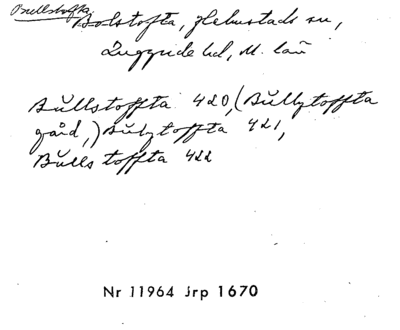 Bullstofta
Bolstofta, Helmstads sn,
Luggude hd, M. län
Bŭllstoffta 420, (Bŭllytoffta
gård,) Bŭlytoffta 421,
Bŭlls toffta 422
Nr 11964 Jrp 1670